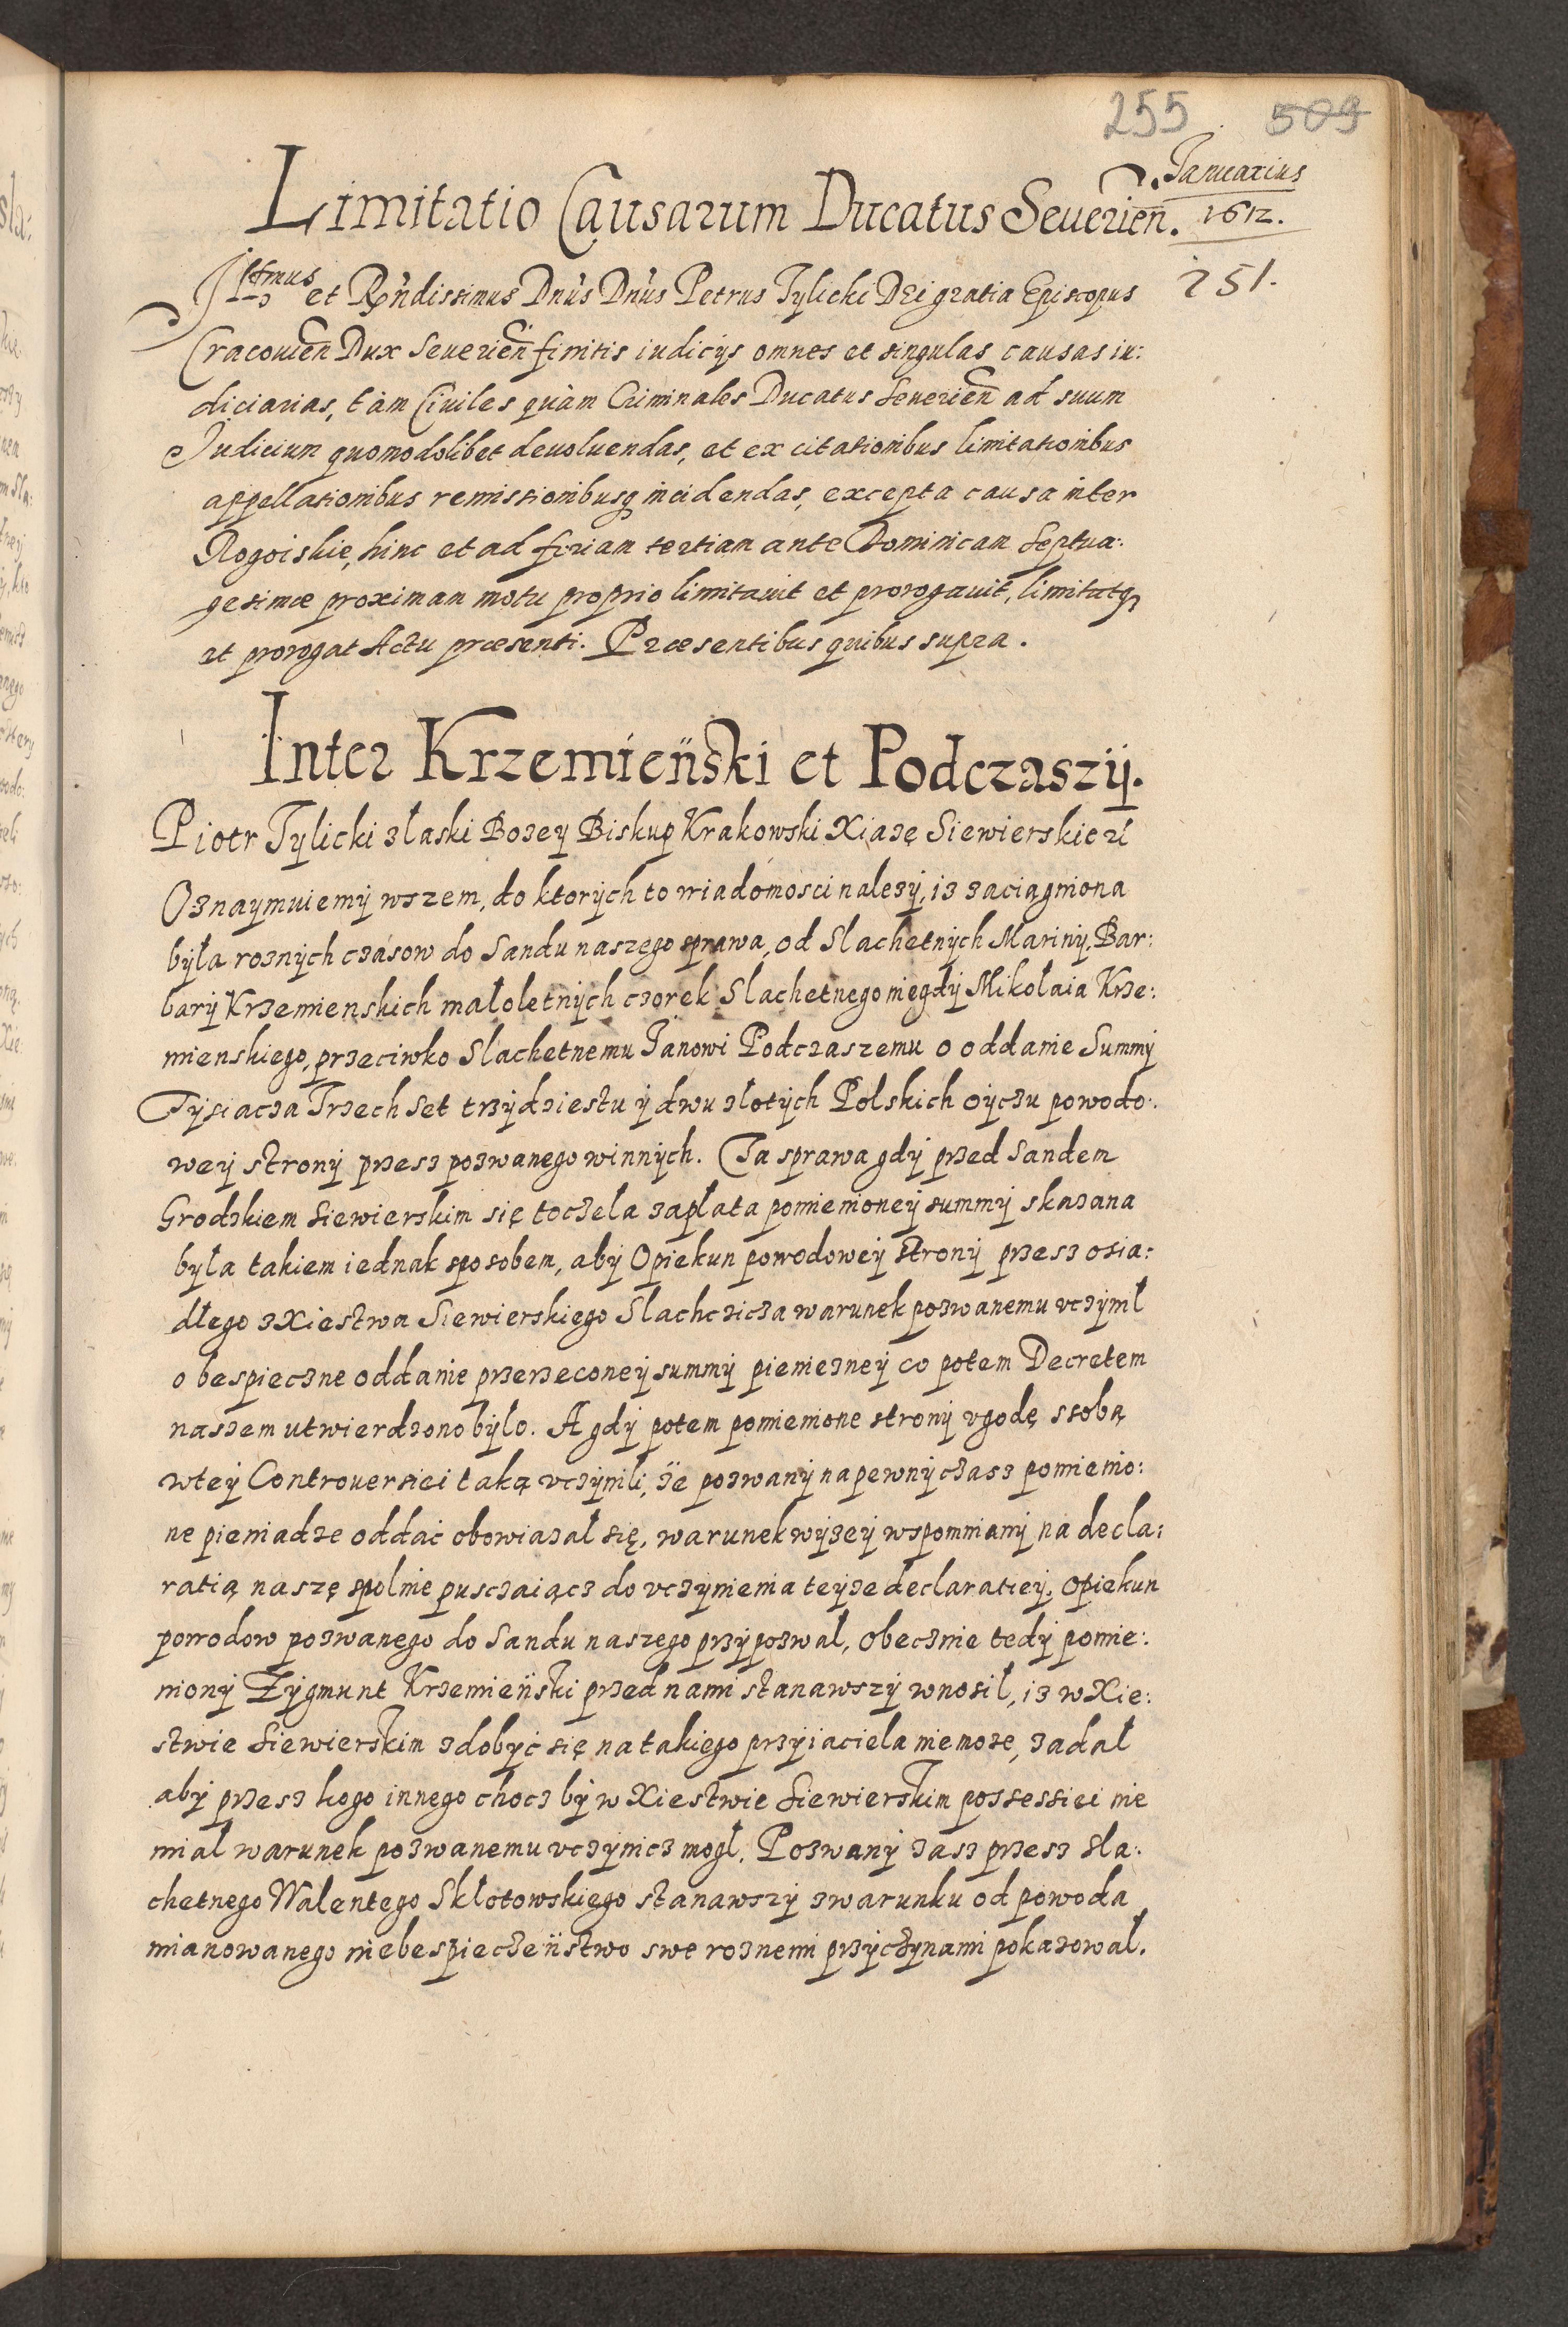 255 509
Januarius
1612.
Limitatio Causarum Ducatus Seuerien̄.
251.
Ill̄mus et Rn̄dissimus Dnūs Dnūs Petrus Tylicki DEi gratia Episcopus
Cracouien̄ Dux Seuerien̄ finitis iudicijs omnes et singulas causas iu:
diciarias, tàm Ciuiles quàm Criminales Ducatus Seuerien̄ ad suum
Judicium quomodolibet deuoluendas, et ex citationibus limitationibus
appellationibus remissionibusq3 incidendas, excepta causa inter
Rogoiskie, hinc et ad feriam tertiam ante Dominicam Septua:
gesimæ proximam motu proprio limitauit et prorogauit, limitatq3
et prorogat Actu præsenti. Præsentibus quibus supra.
Inter Krzemieński et Podczaszÿ.
Piotr Tÿlicki złaski Bozeÿ Biskup Krakowski Xiazę Siewierskie zć
Oznaymuiemÿ wszem, do ktorÿch to wiadómosci nalezÿ, iz zaciągniona
bÿła roznÿch czásow do Sandu naszego sprawa, od Slachetnÿch Marinÿ, Bar:
barÿ Krzemienskich małoletnÿch czorek Slachetnego niegdÿ Mikołaia Krze:
mienskiego, przeciwko Slachetnemu Janowi Podczaszemu o oddanie Summÿ
Tÿsiacza Trzech Set trzÿdziestu ÿ dwu złotÿch Polskich oÿczu powodo:
weÿ stronÿ przesz pozwanego winnÿch. Ta sprawa gdÿ przed Sandem
Grodzkiem Siewierskim się toczela zapłata pomienioneÿ summÿ skazana
bÿła takiem iednak sposobem, abÿ Opiekun powodoweÿ stronÿ przesz osia:
dłego z Xiestwa Siewierskiego Slachczicza warunek pozwanemu vczÿnił
o bespieczne oddanie przerzeconeÿ summÿ pieniezneÿ co potem Decretem
naszem utwierdzono bÿło. A gdÿ potem pomienione stronÿ vgodę ssobą
wteÿ Controuersiei taką vczÿnili, że pozwanÿ na pewnÿ czasz pomienio:
ne pieniadze oddać obowiazał się, warunek wÿzeÿ wspomnianÿ na decla:
ratią naszę spolnie pusczaiącz do vczÿnienia teÿze declaratieÿ, Opiekun
powodow pozwanego do Sandu naszego przÿpozwal, obecznie tedÿ pomie:
nionÿ Zÿgmunt Krzemieński przed nami stanawszÿ wnosił, iz w Xie:
stwie Siewierskim zdobÿć się na takiego przÿiaciela nie moze, zadał
abÿ przesz kogo innego chocz bÿ w Xiestwie Siewierskim possessiei nie
miał warunek pozwanemu vczÿnicz mogł. Pozwanÿ zasz przesz Sla:
chetnego Walentego Skłotowskiego stanawszÿ zwarunku od powoda
mianowanego niebespieczeństwo swe roznemi przÿczÿnami pokazował.